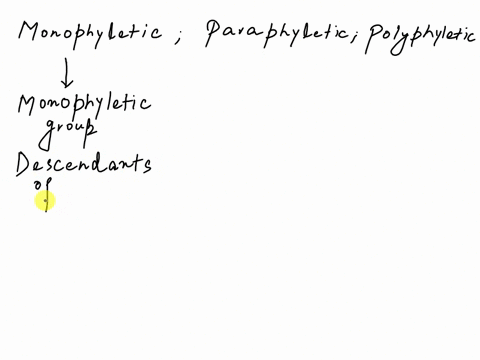 Monophyletic ; Paraphyletic ; Polyphyletic
Monophyletic
group
Descendants
of